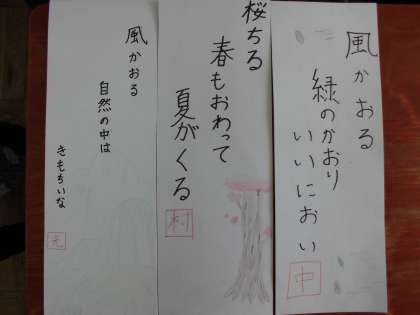 風かおる
緑のかおり
いいにおい
中
桜ちる
春もおわって
夏がくる
村
風かおる
自然の中は
きもちいな
元